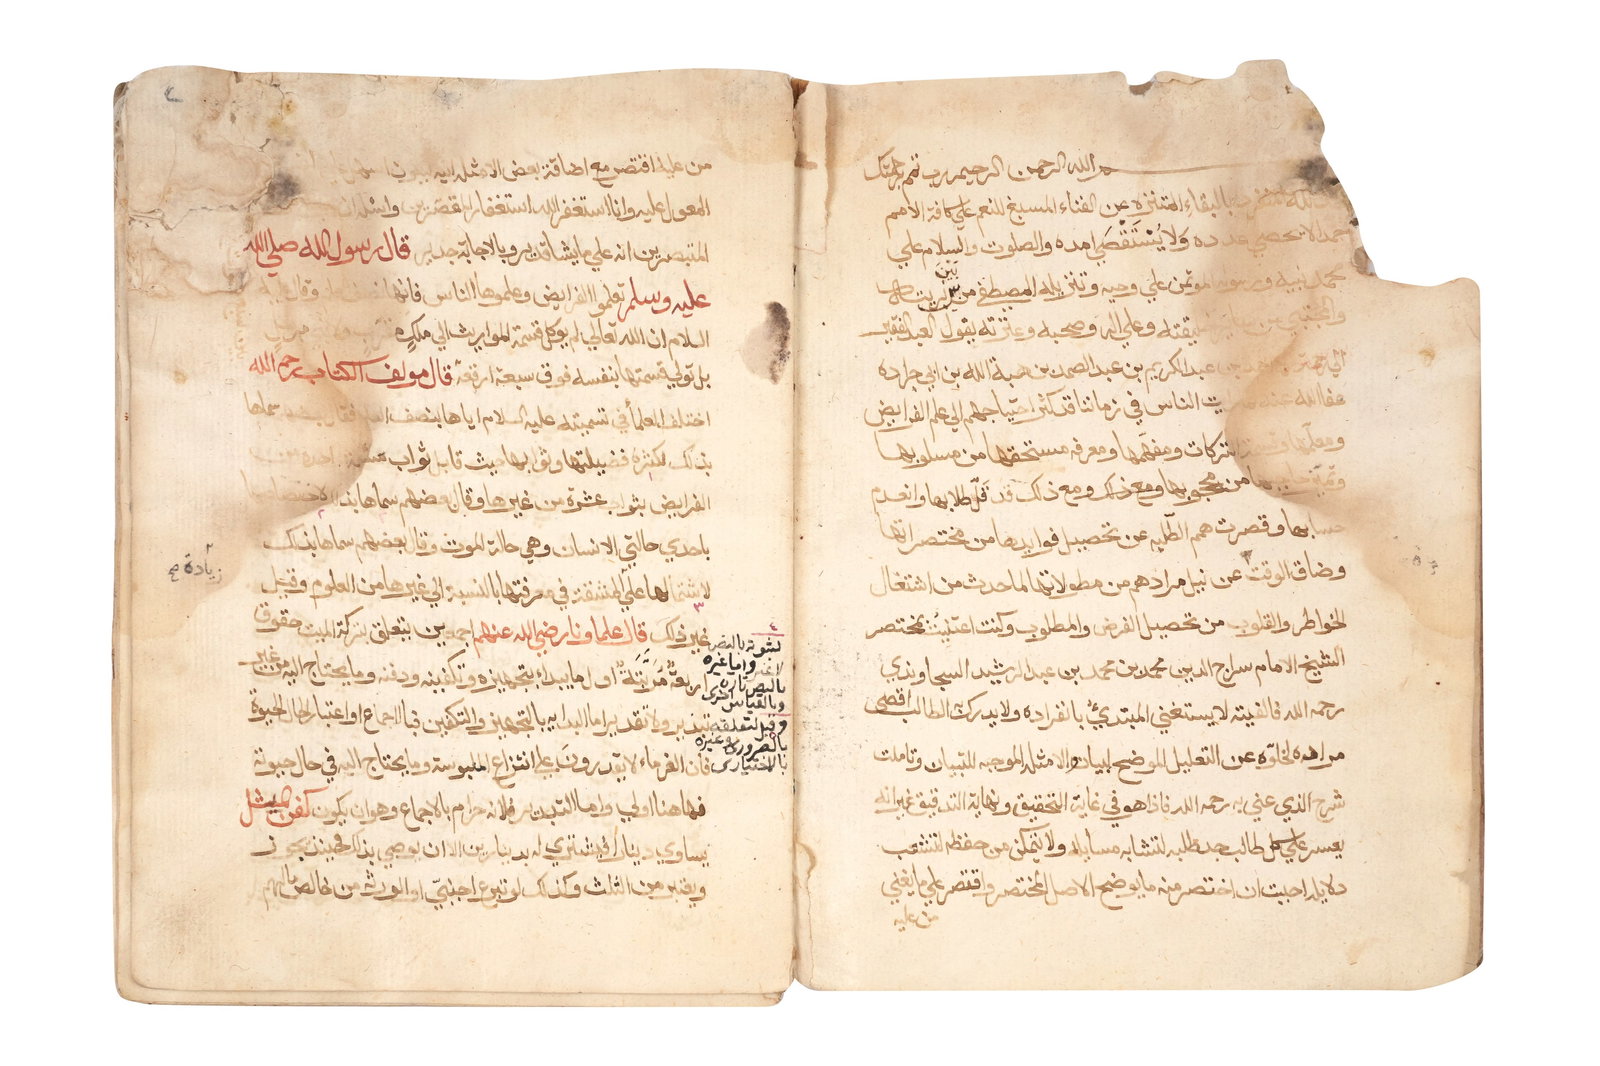 الله الرحمن الرحيم رب تمم برحمتك
بالبقاء المتنزه عن الفناء المسبغ النعم علي كافة الامم
حمدا لا تحصي عدده ولا يستقصي امده والصلوت والسلام علي
محمد نبيه ورسوله المؤتمن علي وحيه وتنزيله المصطفي من
بين
وعلي اله وصحبه وعترته يقول العبد الفقير
الي رحمة عبد الكريم بن عبد الصمد بن هبة الله بن ابي جراده
عفا الله عنه الناس في زماننا قد كثر احتياجهم الي علم الفرايض
ومعلمها التركات ومفهمها ومعرفه مستحقها من مسلوبها
من محجوبها ومع ذلك قد قل طلابها وانعدم
حسابها وقصرت همم الطلبه عن تحصيل فوايدها من مختصراتها
وضاق الوقت عن نيل مرادهم من مطولاتها لما حدث من اشتغال
الخواطر والقلوب من تحصيل الفرض والمطلوب وكنت اعتنيت بمختصر
الشيخ الامام سراج الدين محمد بن محمد بن عبد الرشيد السجاوندي
رحمه الله فالفيته لا يستغني المبتدئ بانفراده ولا يدرك الطالب اقصي
مراده لخلوه عن التعليل الموضح لبيان والامثله الموجبه للتبيان وتاملت
شرح الذي عني به رحمه الله فاذا هو في غاية التحقيق ونهاية التدقيق غير انه
يعسر علي كل طالب جد طلبه لتشابه مسايله ولا يتمكن من حفظه لتشعب
دلايله احببت ان اختصر منه ما يوضح الاصل المختصر واقتصر علي ما يغني
من عليه
من عليه اقتصر مع اضافة بعض الامثله اليه
المعول عليه وانا استغفر الله استغفار المقصرين
المتبصرين انه علي ما يشا قدير وبالاجابة جدير قال رسول الله صلي الله
عليه وسلم تعلموا الفرايض وعلموها الناس فانها نصف وقال عليه
السلام ان الله تعالي لم يوكل قسمة المواريث الي ملك
بل تولي قسمتها بنفسه فوق سبعة ارقعة قال مولف الكتاب رحمه الله
اختلف العلما في تسميته عليه السلام اياها بنصف العلم
بذلك لكثرة فضيلتها وثوابها حيث قابل ثواب
الفرايض بثواب عشرة من غيرها وقال بعضهم سماها
باحدي حالتي الانسان وهي حالة الموت وقال بعضهم سماها بذلك
لاشتمالها علي المشقة في معرفتها بالنسبة الي غيرها من العلوم وقيل
غير ذلك قال علماونا رضي الله عنهم اجمعين يتعلق بتركة الميت حقوق
اربعة مرتبة اول ما يبدا بتجهيزه وتكفينه ودفنه وما يحتاج اليه من غير
تبذير ولا تقدير اما البدايه بالتجهيز والتكفين فبالاجماع او اعتبارا لحال الحيوة
فان الغرماء لا يقدرون علي انتزاع الملبوسة وما يحتاج اليه في حال حيوته
فهاهنا اولي واما التبذير فلانه حرام بالاجماع وهو ان يكون كفن
يساوي دينارا فيشتري له بدينارين الا ان يوصي بذلك فحينئذ يجوز
ويعتبر من الثلث وكذلك لو تبرع اجنبي او الورثة من خالص مالهم
زيادة صح
واما غيره
بالنص تارة
وبالقياس اخري
بالاختياري